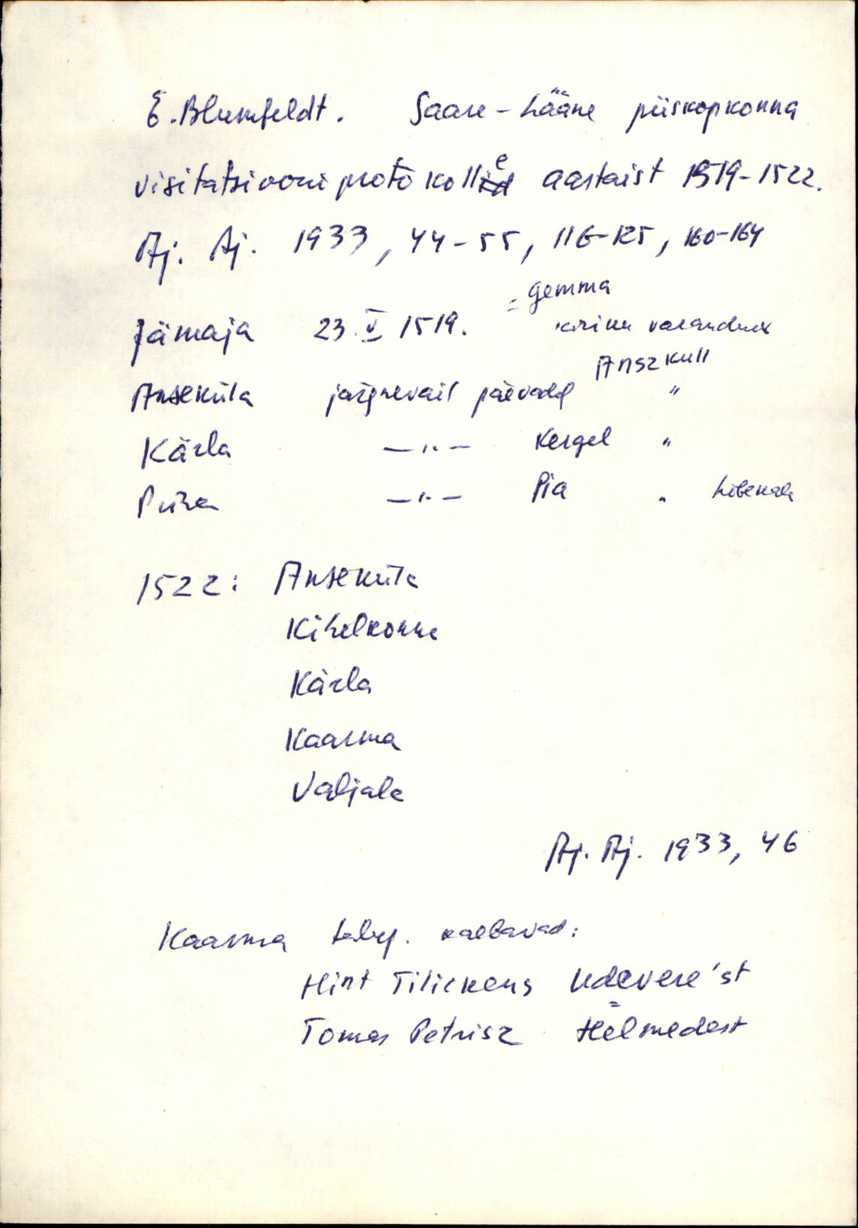 E. Blumfeldt. Saare-Lääne piiskopkonna
visitatsiooniprotokolle aastaist 1519-1522.
Aj. Aj. 1933, 44-55, 116-125, 160-164
= gemma
Jämaja 23. V 1519. kiriku varandus
Anseküla järgnevail päevadel Anszkull "
Kärla —"— Kergel "
Püha —"— Pia "
1522: Anseküla
Kihelkonna
Kärla
Kaarma
Valjala
Aj. Aj. 1933, 46
Kaarma talup. kaebavad:
Hint Tilickens Udevere'st
Tomas Petrisz Helmedest